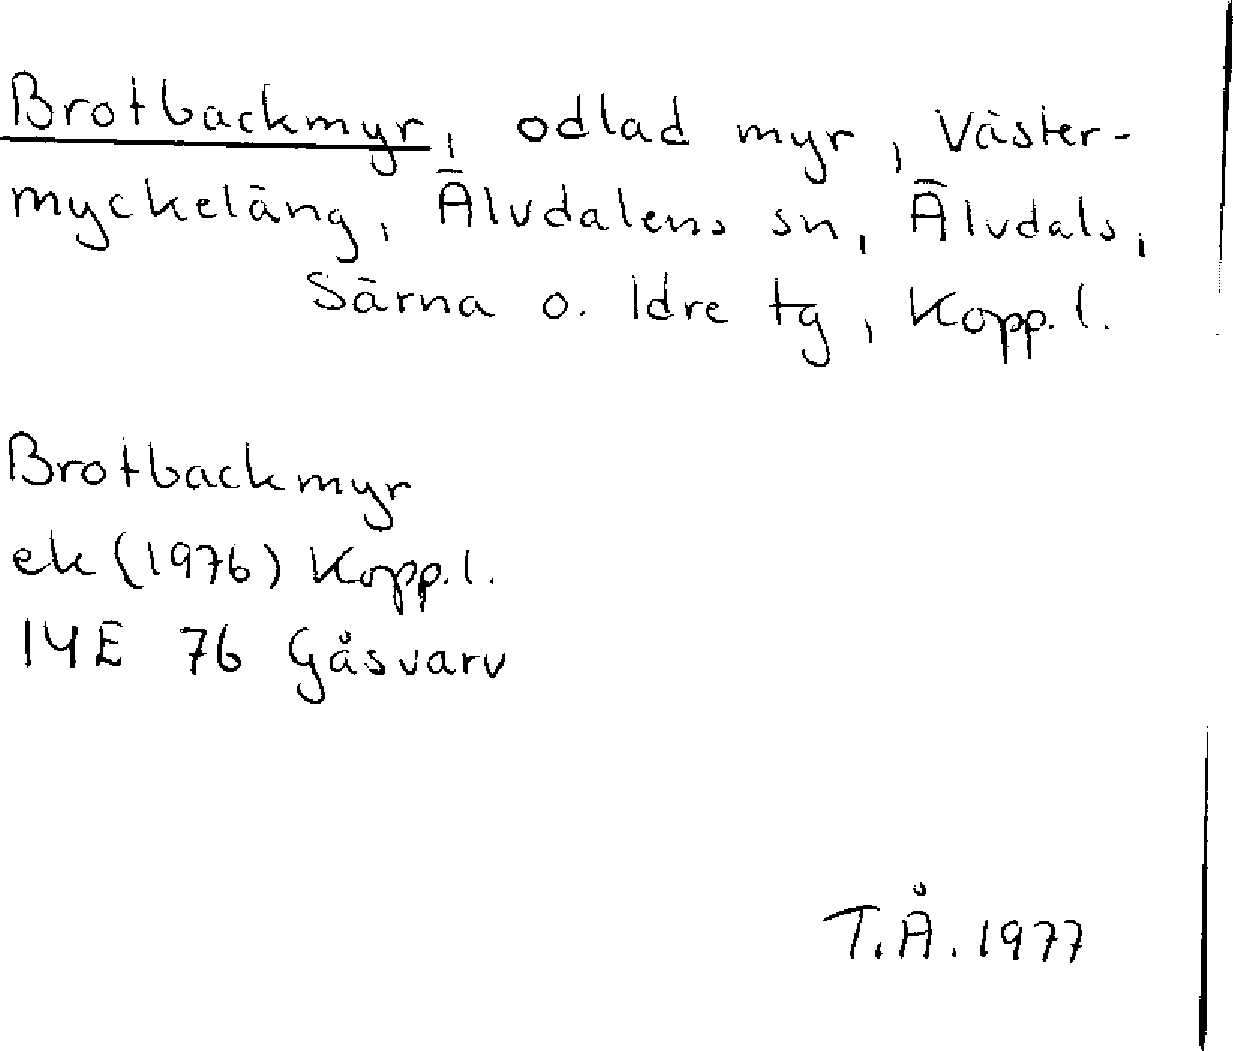 Brotbackmyr, odlad myr, Väster-
myckeläng, Älvdalens sn, Älvdals,
Särna o. Idre tg, Kopp. l.
Brotbackmyr
ek (1976) Kopp. l.
14E 7b Gåsvarv
T.Å. 1977